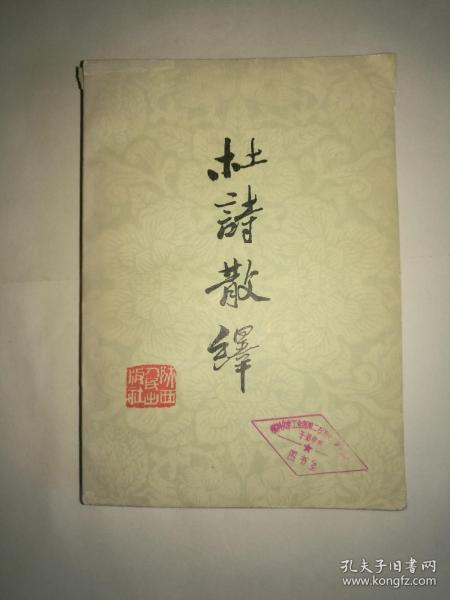 杜詩散繹
陕西
人民出
版社
图书室
孔夫子旧书网
www.kongfz.com